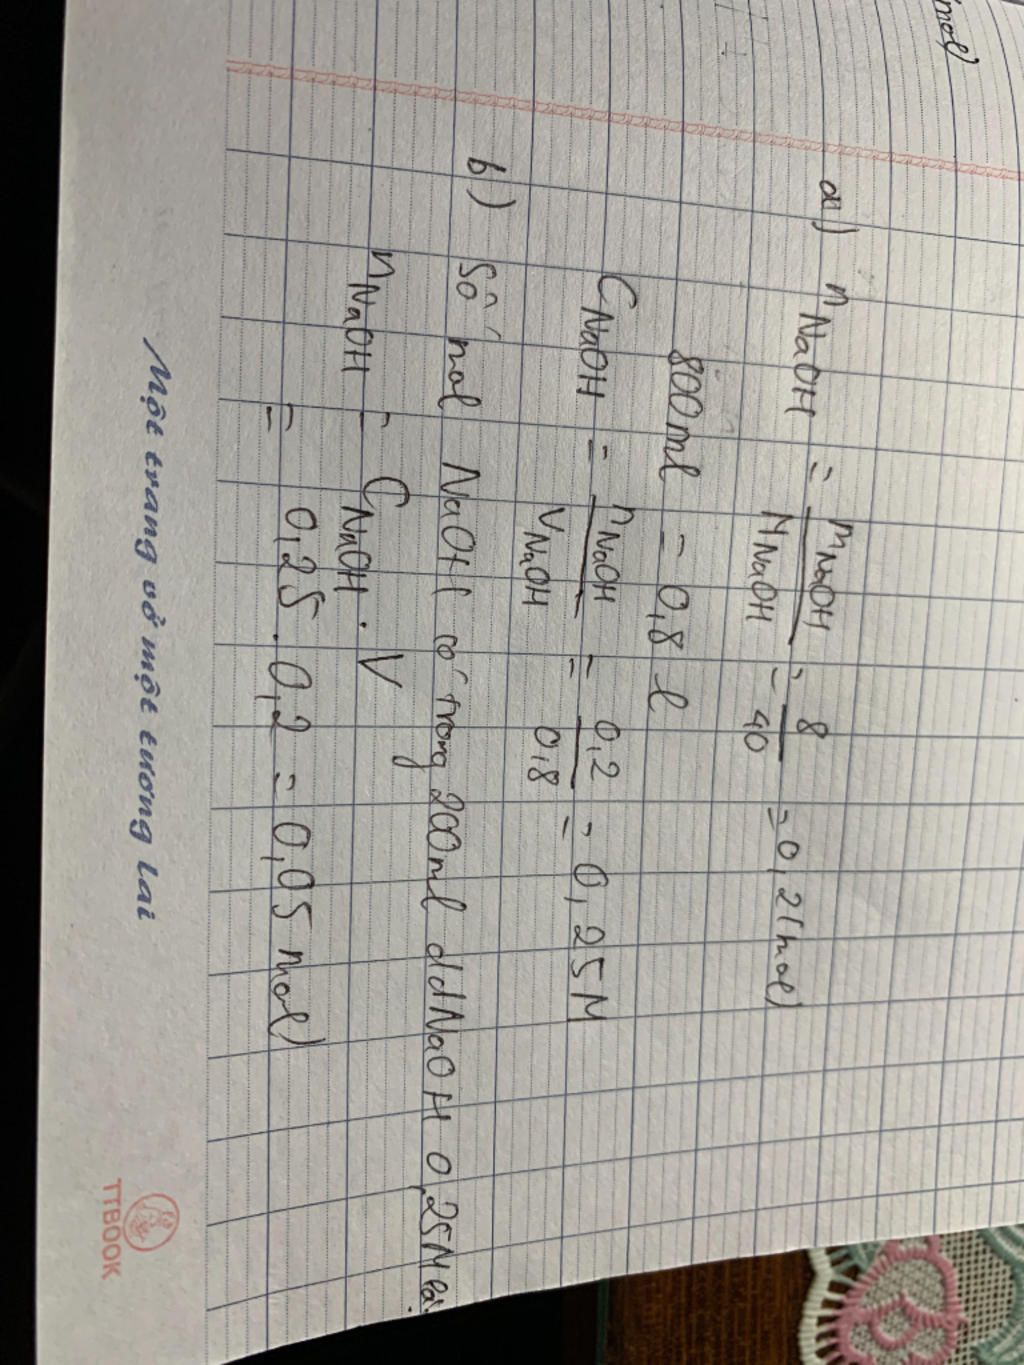 mol)
a) nNaOH = mNaOH / MNaOH = 8 / 40 = 0,2(mol)
800ml = 0,8 l
CNaOH = nNaOH / VNaOH = 0,2 / 0,8 = 0,25M
b) Số mol NaOH có trong 200ml ddNaOH 0,25M là:
nNaOH = CNaOH . V
= 0,25 . 0,2 = 0,05 mol)
Một trang vở một tương lai
TTBOOK